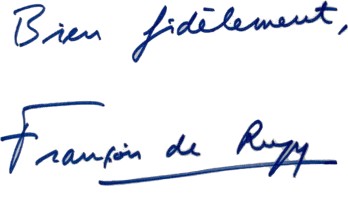 Bien fidèlement,
François de Rugy